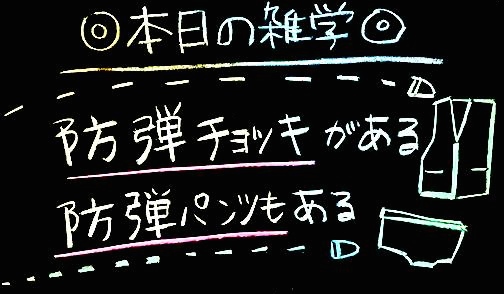 ◎本日の雑学◎
防弾チョッキがある
防弾パンツもある